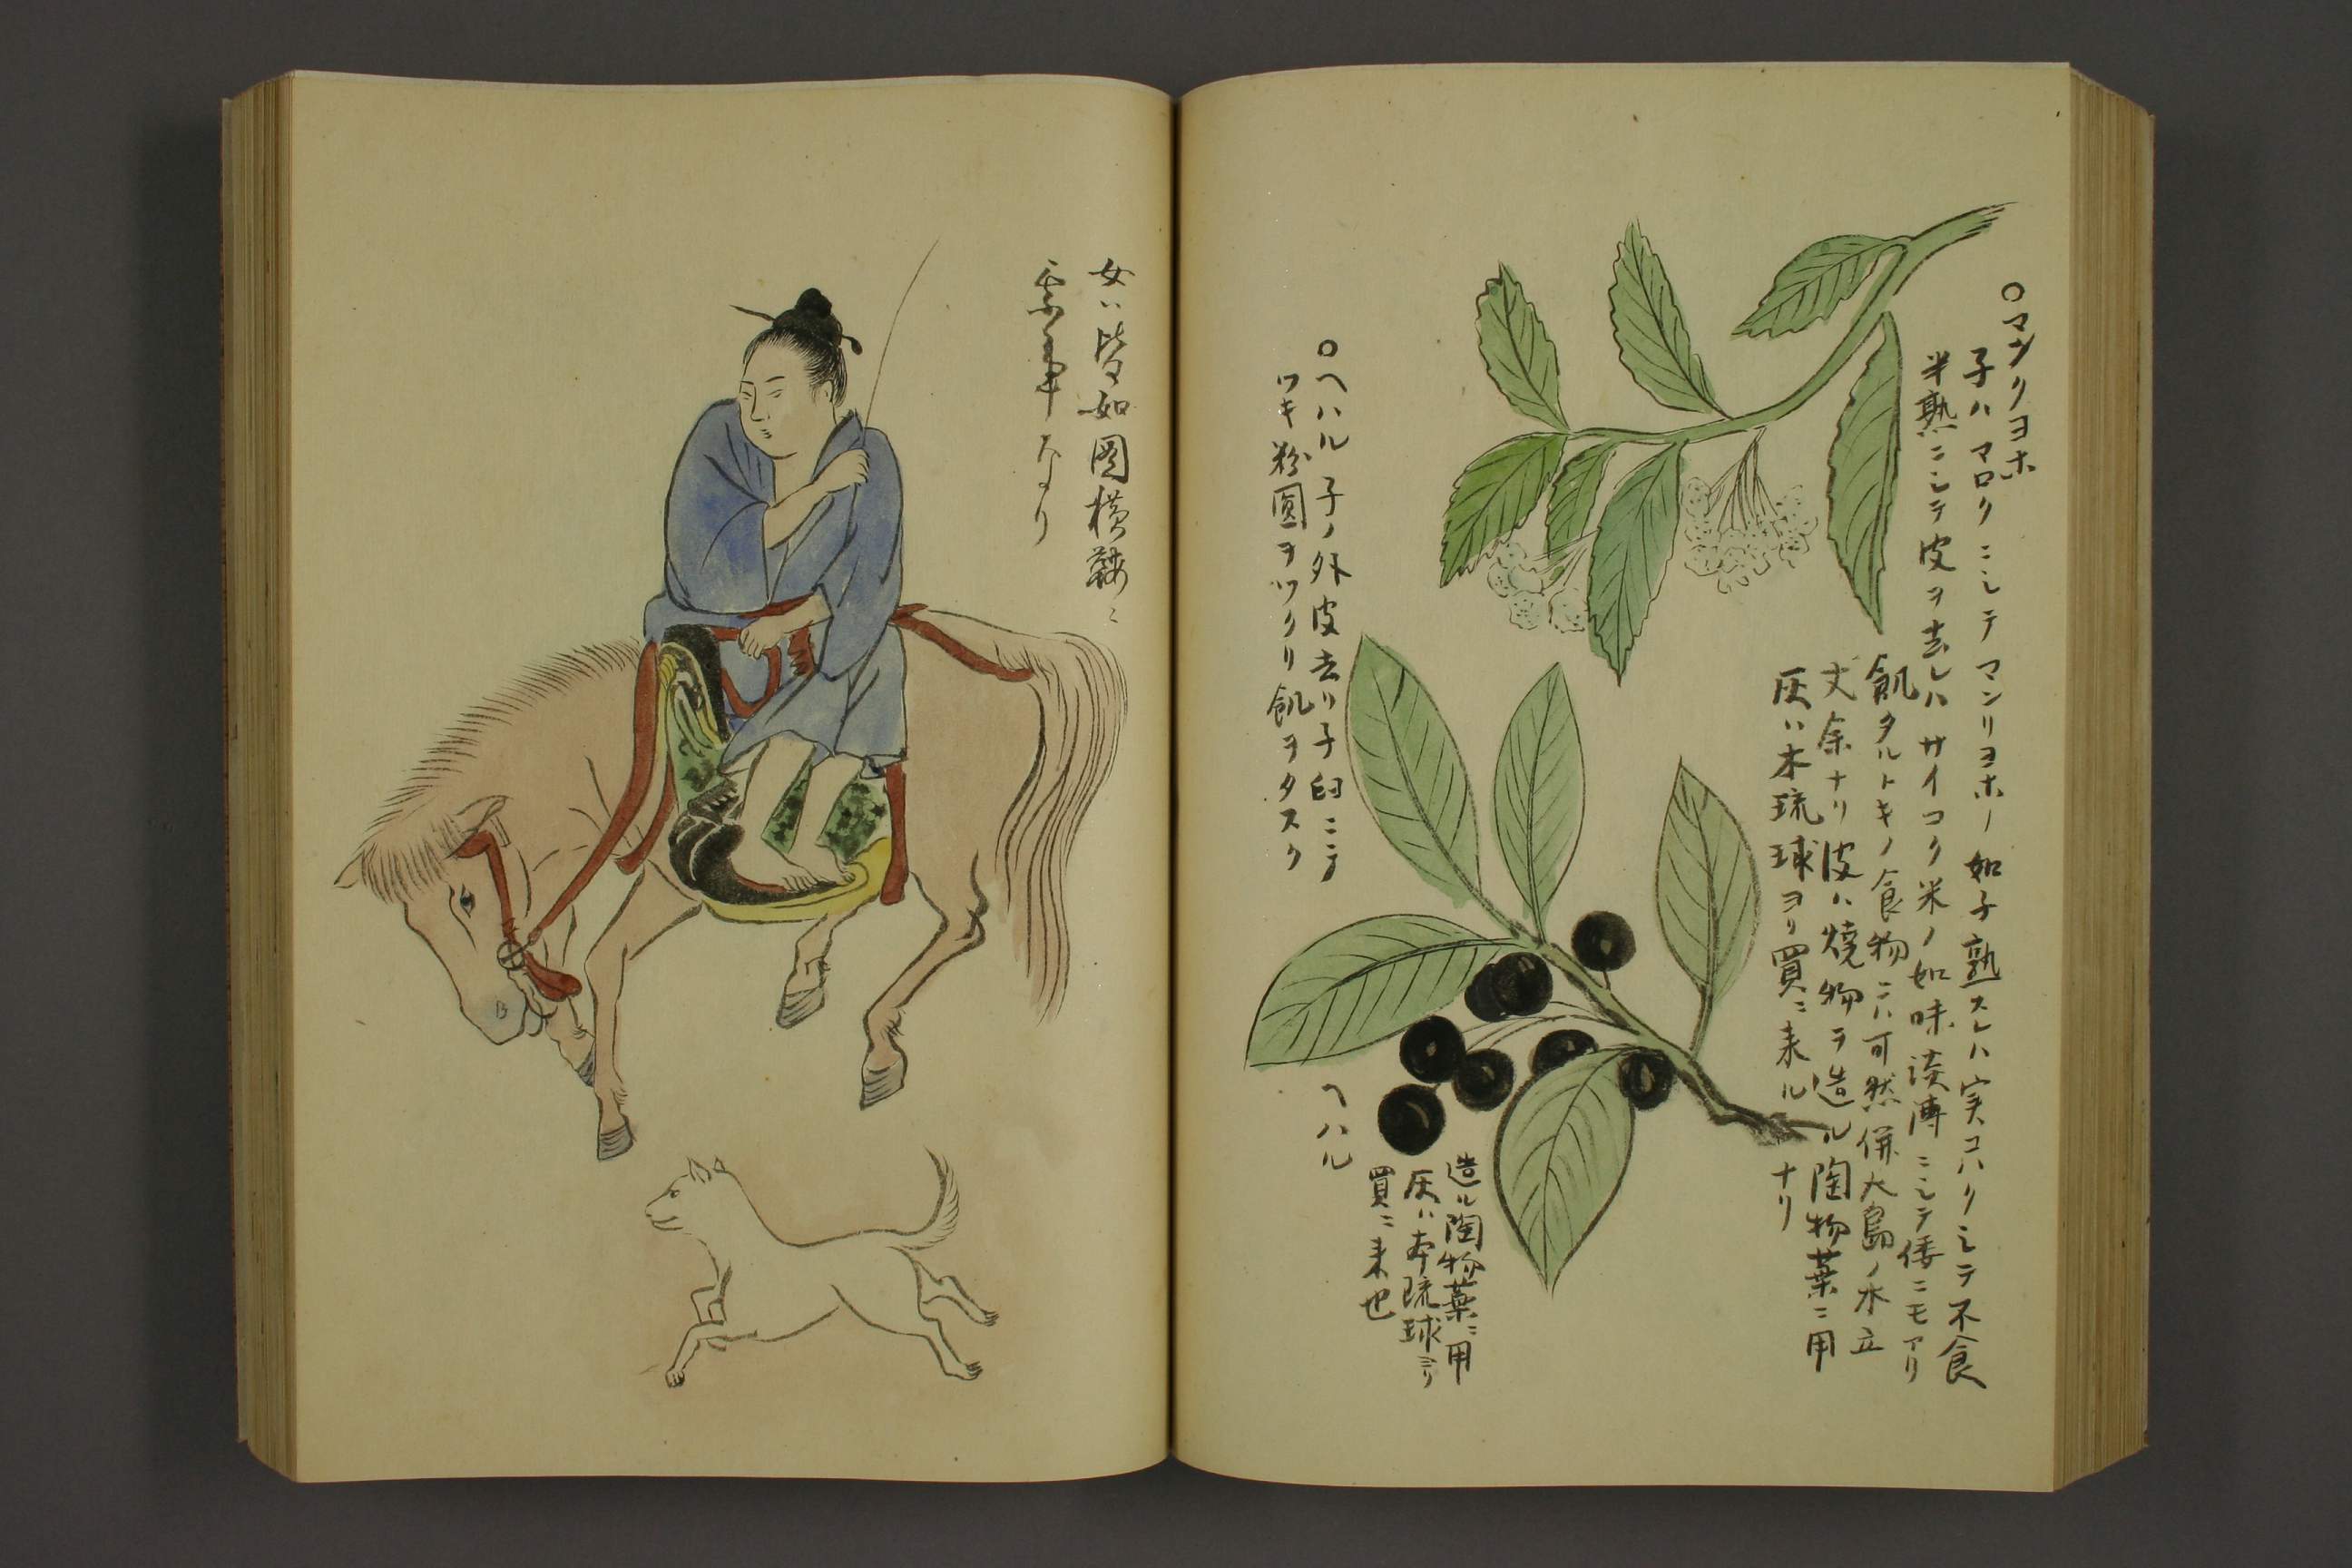 ○マンリヨホ
子ハマロクニシテマンリヨホノ如子熟スレハ実コハクシテ不食
半熟ニシテ皮ヲ去レハサイコク米ノ如味淡薄ニシテ倭ニモアリ
飢タルトキノ食物ニハ可然併大島ノ木立
丈余ナリ皮ハ焼物ヲ造ル陶物薬ニ用
灰ハ本琉球ヨリ買ニ来ルナリ
○ヘハル子ノ外皮去リ子臼ニテ
ツキ粉団ヲツクリ飢ヲタスク
造ル陶物薬ニ用
灰ハ本琉球ヨリ
買ニ来也
ヘハル
女ハ皆如図横鞍ニ
乗事なり